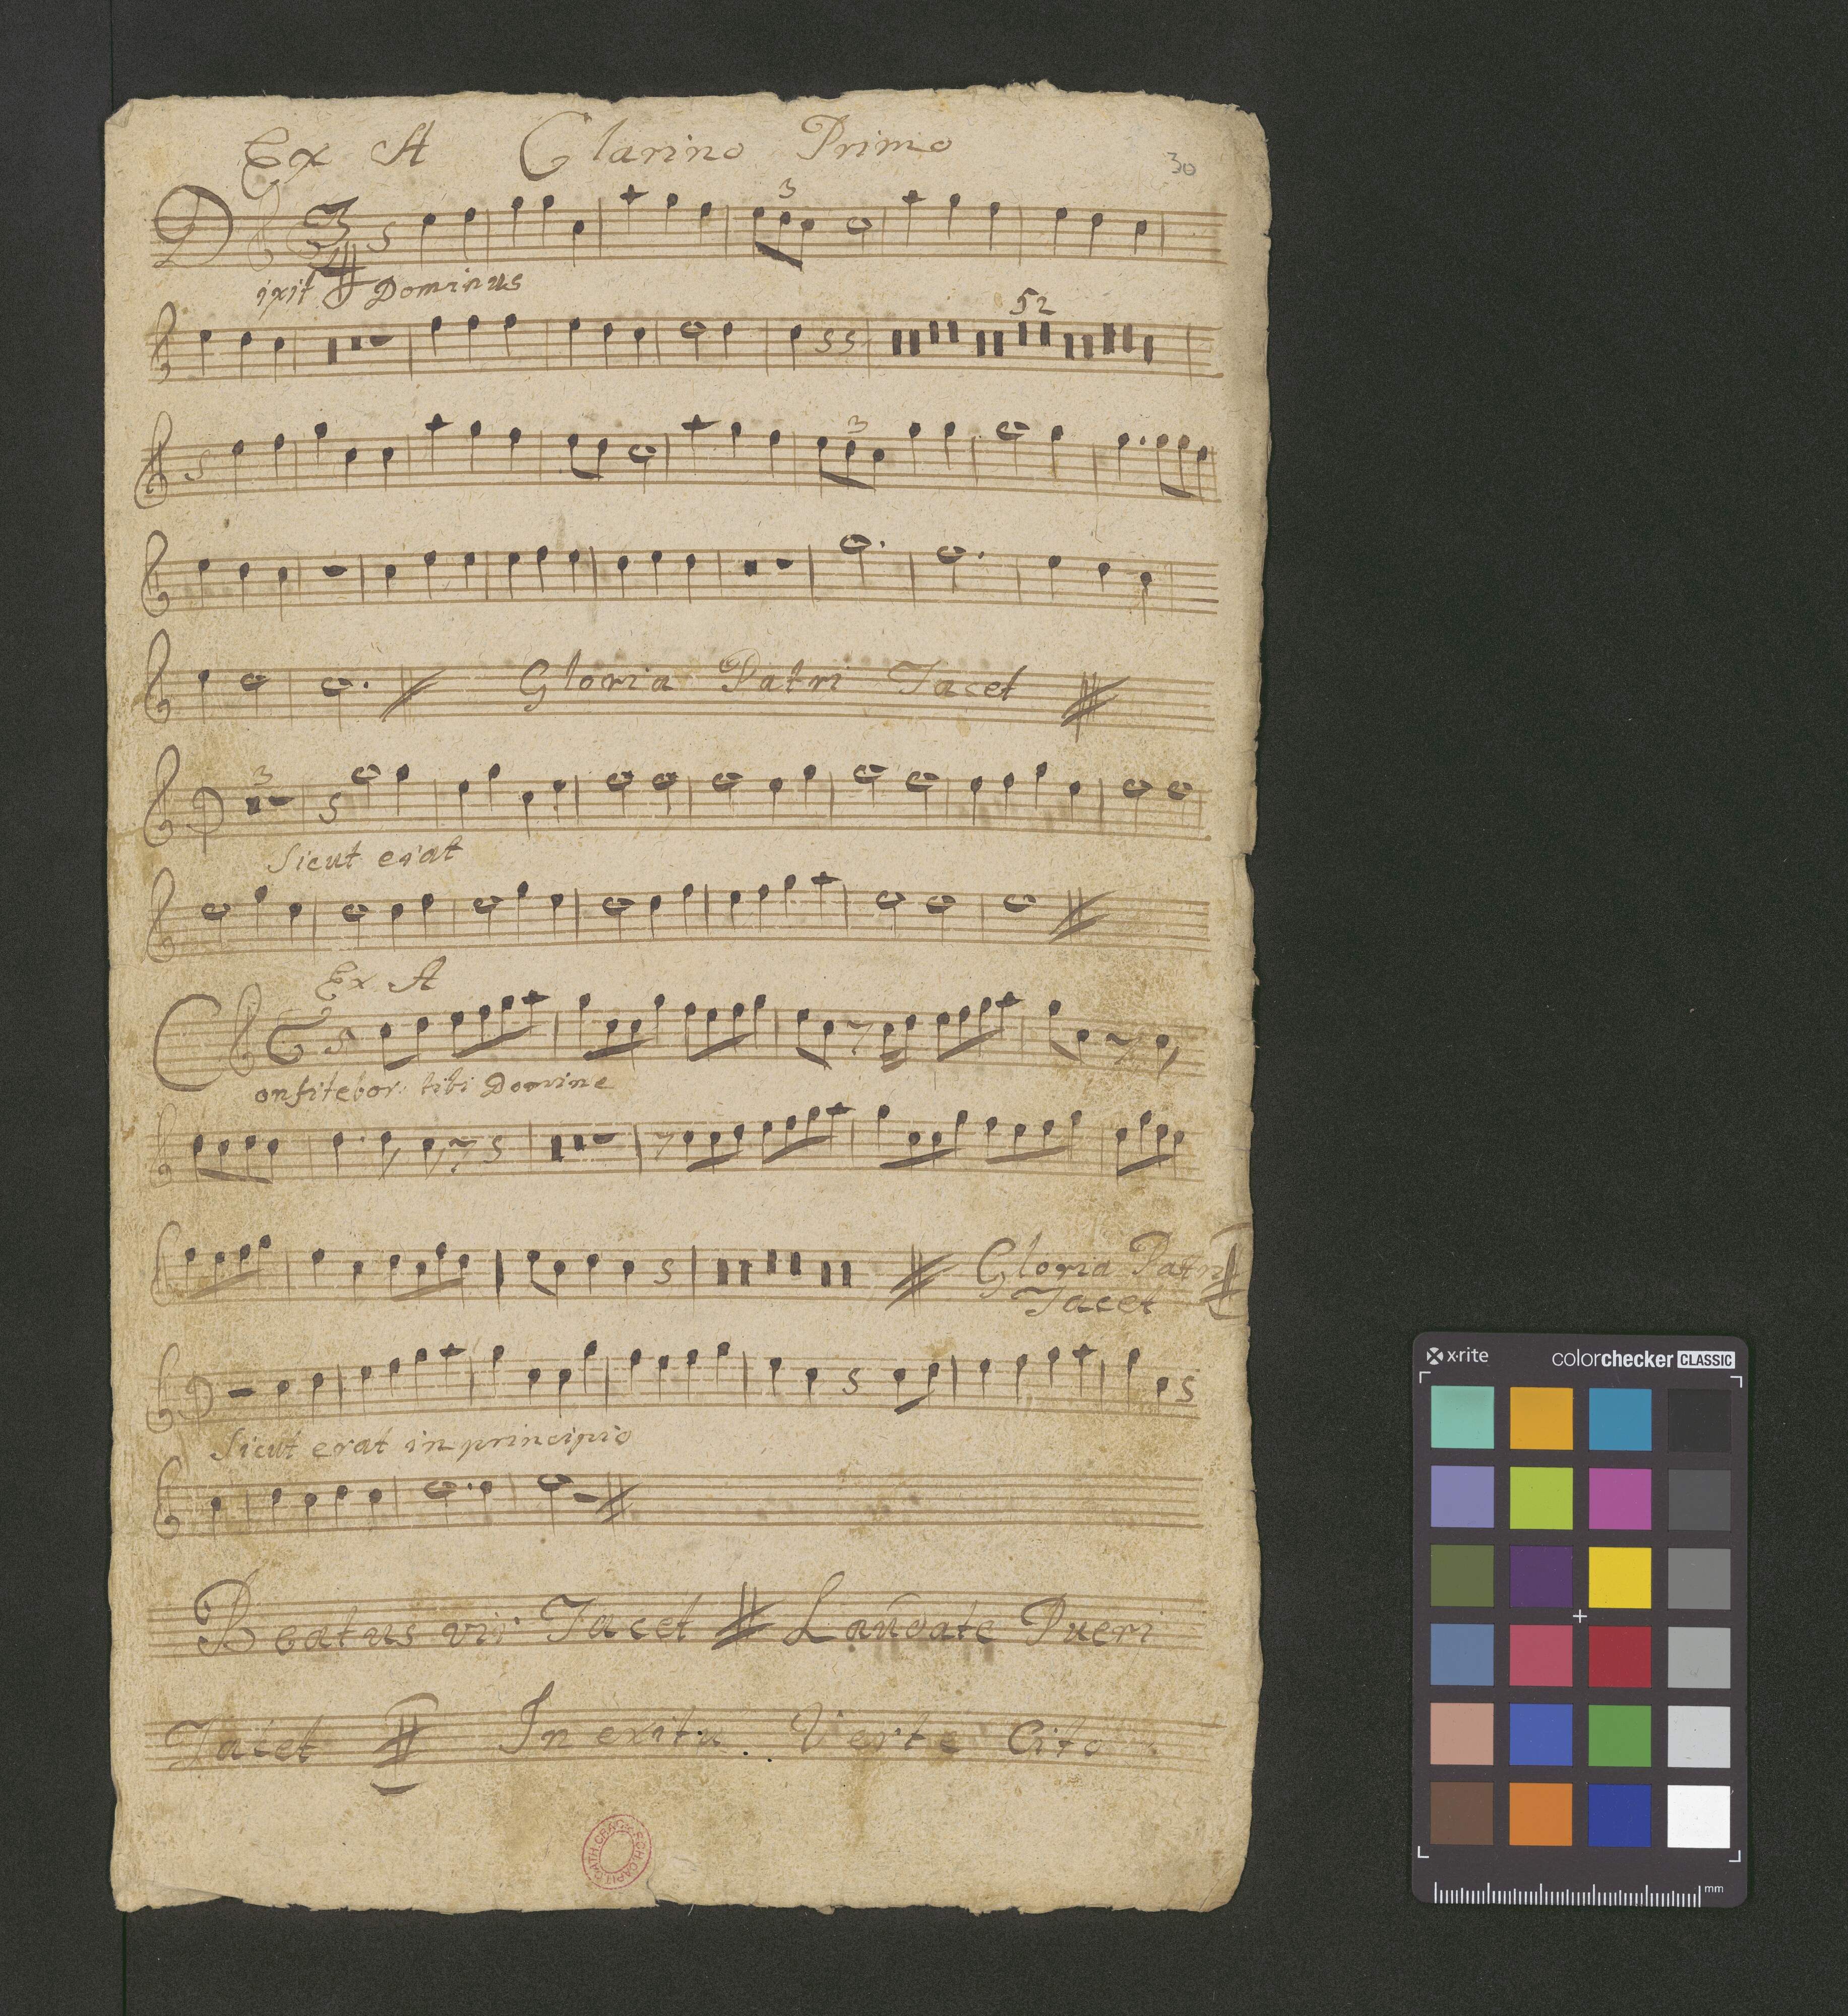 Ex A Clarino Primo
30
3
Dixit Dominus
52
3
Gloria Patri Tacet
3
Sicut erat
Ex A
Confitebor tibi Domine
Gloria Patri
Tacet
Sicut erat in principio
Beatus vir Tacet Laudate Pueri
Tacet In exitu Verte Cito
x·rite colorchecker CLASSIC
mm